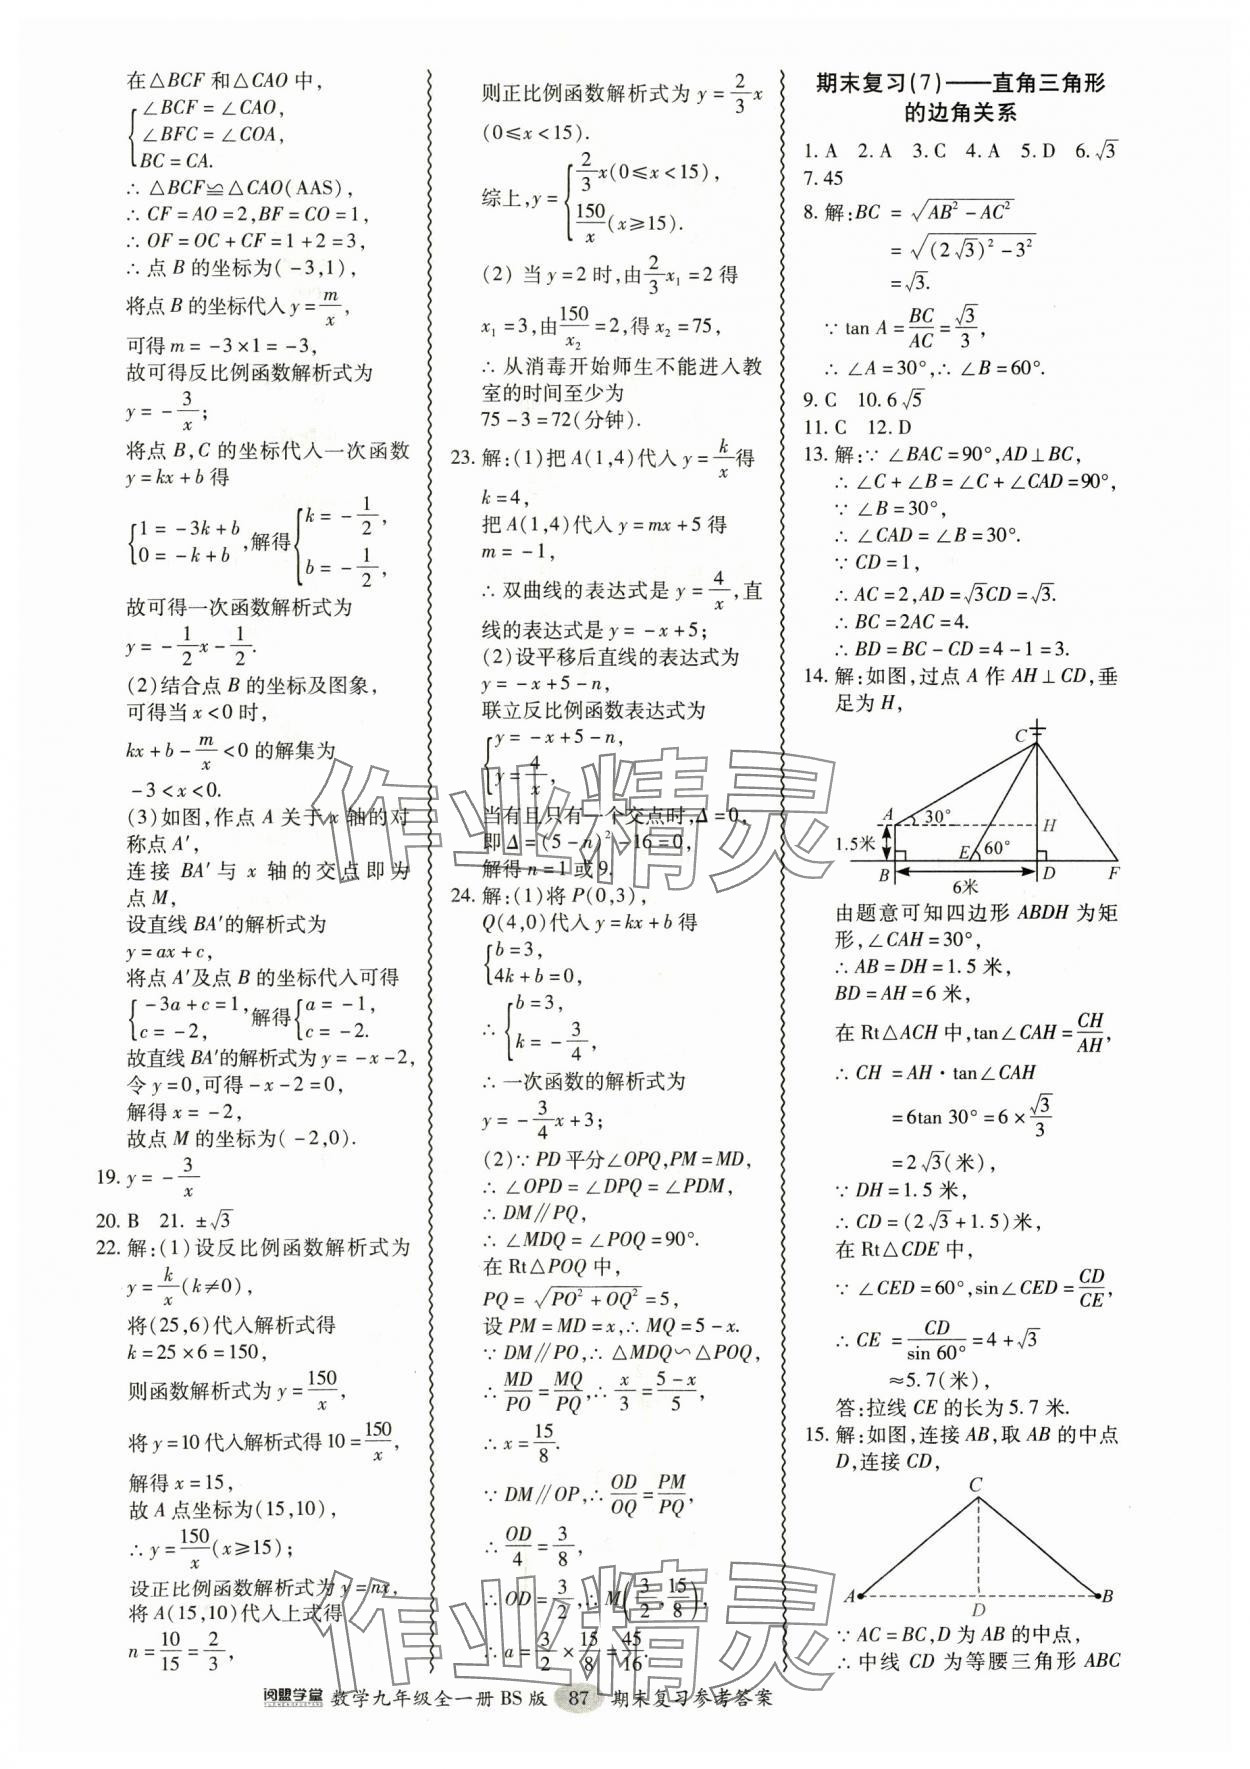 在△BCF 和△CAO 中,
{∠BCF = ∠CAO,
∠BFC = ∠COA,
BC = CA.
∴ △BCF≌△CAO(AAS),
∴ CF = AO = 2, BF = CO = 1,
∴ OF = OC + CF = 1 + 2 = 3,
∴ 点 B 的坐标为( -3,1),
将点 B 的坐标代入 y = m/x,
可得 m = -3×1 = -3,
故可得反比例函数解析式为
y = -3/x;
将点 B,C 的坐标代入一次函数
y = kx + b 得
{1 = -3k + b, 0 = -k + b ,解得{k = -1/2, b = -1/2,
故可得一次函数解析式为
y = -1/2x - 1/2.
(2)结合点 B 的坐标及图象,
可得当 x < 0 时,
kx + b - m/x < 0 的解集为
-3 < x < 0.
(3)如图,作点 A 关于 x 轴的对
称点 A′,
连接 BA′ 与 x 轴的交点即为
点 M,
设直线 BA′的解析式为
y = ax + c,
将点 A′及点 B 的坐标代入可得
{-3a + c = 1, c = -2, 解得{a = -1, c = -2.
故直线 BA′的解析式为 y = -x - 2,
令 y = 0,可得 -x - 2 = 0,
解得 x = -2,
故点 M 的坐标为( -2,0).
19. y = -3/x
20. B 21. ±√3
22. 解:(1)设反比例函数解析式为
y = k/x(k≠0),
将(25,6)代入解析式得
k = 25×6 = 150,
则函数解析式为 y = 150/x,
将 y = 10 代入解析式得 10 = 150/x,
解得 x = 15,
故 A 点坐标为(15,10),
∴ y = 150/x(x≥15);
设正比例函数解析式为 y = nx,
将 A(15,10)代入上式得
n = 10/15 = 2/3,
则正比例函数解析式为 y = 2/3x
(0≤x < 15).
综上, y = {2/3x(0≤x < 15), 150/x(x≥15).
(2) 当 y = 2 时,由 2/3x₁ = 2 得
x₁ = 3,由150/x₂ = 2,得 x₂ = 75,
∴ 从消毒开始师生不能进入教
室的时间至少为
75 - 3 = 72(分钟).
23. 解:(1)把 A(1,4)代入 y = k/x得
k = 4,
把 A(1,4)代入 y = mx + 5 得
m = -1,
∴ 双曲线的表达式是 y = 4/x,直
线的表达式是 y = -x + 5;
(2)设平移后直线的表达式为
y = -x + 5 - n,
联立反比例函数表达式为
{y = -x + 5 - n,
y = 4/x,
当有且只有一个交点时,Δ = 0,
即 Δ = (5 - n)² - 16 = 0,
解得 n = 1 或 9.
24. 解:(1)将 P(0,3),
Q(4,0)代入 y = kx + b 得
{b = 3,
4k + b = 0,
∴ {b = 3,
k = -3/4,
∴ 一次函数的解析式为
y = -3/4x + 3;
(2)∵ PD 平分∠OPQ, PM = MD,
∴ ∠OPD = ∠DPQ = ∠PDM,
∴ DM∥PQ,
∴ ∠MDQ = ∠POQ = 90°.
在 Rt△POQ 中,
PQ = √(PO² + OQ²) = 5,
设 PM = MD = x,∴ MQ = 5 - x.
∵ DM∥PO,∴ △MDQ∽△POQ,
∴ MD/PO = MQ/PQ,∴ x/3 = (5 - x)/5,
∴ x = 15/8.
∵ DM∥OP,∴ OD/OQ = PM/PQ,
∴ OD/4 = 3/8,
∴ OD = 3/2,∴ M(3/2, 15/8),
∴ a = 3/2 × 15/8 = 45/16.
期末复习(7)——直角三角形
的边角关系
1. A 2. A 3. C 4. A 5. D 6. √3
7. 45
8. 解:BC = √(AB² - AC²)
= √((2√3)² - 3²)
= √3.
∵ tan A = BC/AC = √3/3,
∴ ∠A = 30°,∴ ∠B = 60°.
9. C 10. 6√5
11. C 12. D
13. 解:∵ ∠BAC = 90°, AD⊥BC,
∴ ∠C + ∠B = ∠C + ∠CAD = 90°,
∵ ∠B = 30°,
∴ ∠CAD = ∠B = 30°.
∵ CD = 1,
∴ AC = 2, AD = √3CD = √3.
∴ BC = 2AC = 4.
∴ BD = BC - CD = 4 - 1 = 3.
14. 解:如图,过点 A 作 AH⊥CD,垂
足为 H,
C
A 30° H
1.5米
E 60°
B D F
6米
由题意可知四边形 ABDH 为矩
形,∠CAH = 30°,
∴ AB = DH = 1.5 米,
BD = AH = 6 米,
在 Rt△ACH 中, tan∠CAH = CH/AH,
∴ CH = AH·tan∠CAH
= 6tan 30° = 6×√3/3
= 2√3(米),
∵ DH = 1.5 米,
∴ CD = (2√3 + 1.5)米,
在 Rt△CDE 中,
∵ ∠CED = 60°, sin∠CED = CD/CE,
∴ CE = CD/sin 60° = 4 + √3
≈5.7(米),
答:拉线 CE 的长为 5.7 米.
15. 解:如图,连接 AB,取 AB 的中点
D,连接 CD,
C
A D B
∵ AC = BC, D 为 AB 的中点,
∴ 中线 CD 为等腰三角形 ABC
阅盟学堂 数学九年级全一册 BS 版 87 期末复习参考答案
作业精灵
作业精灵